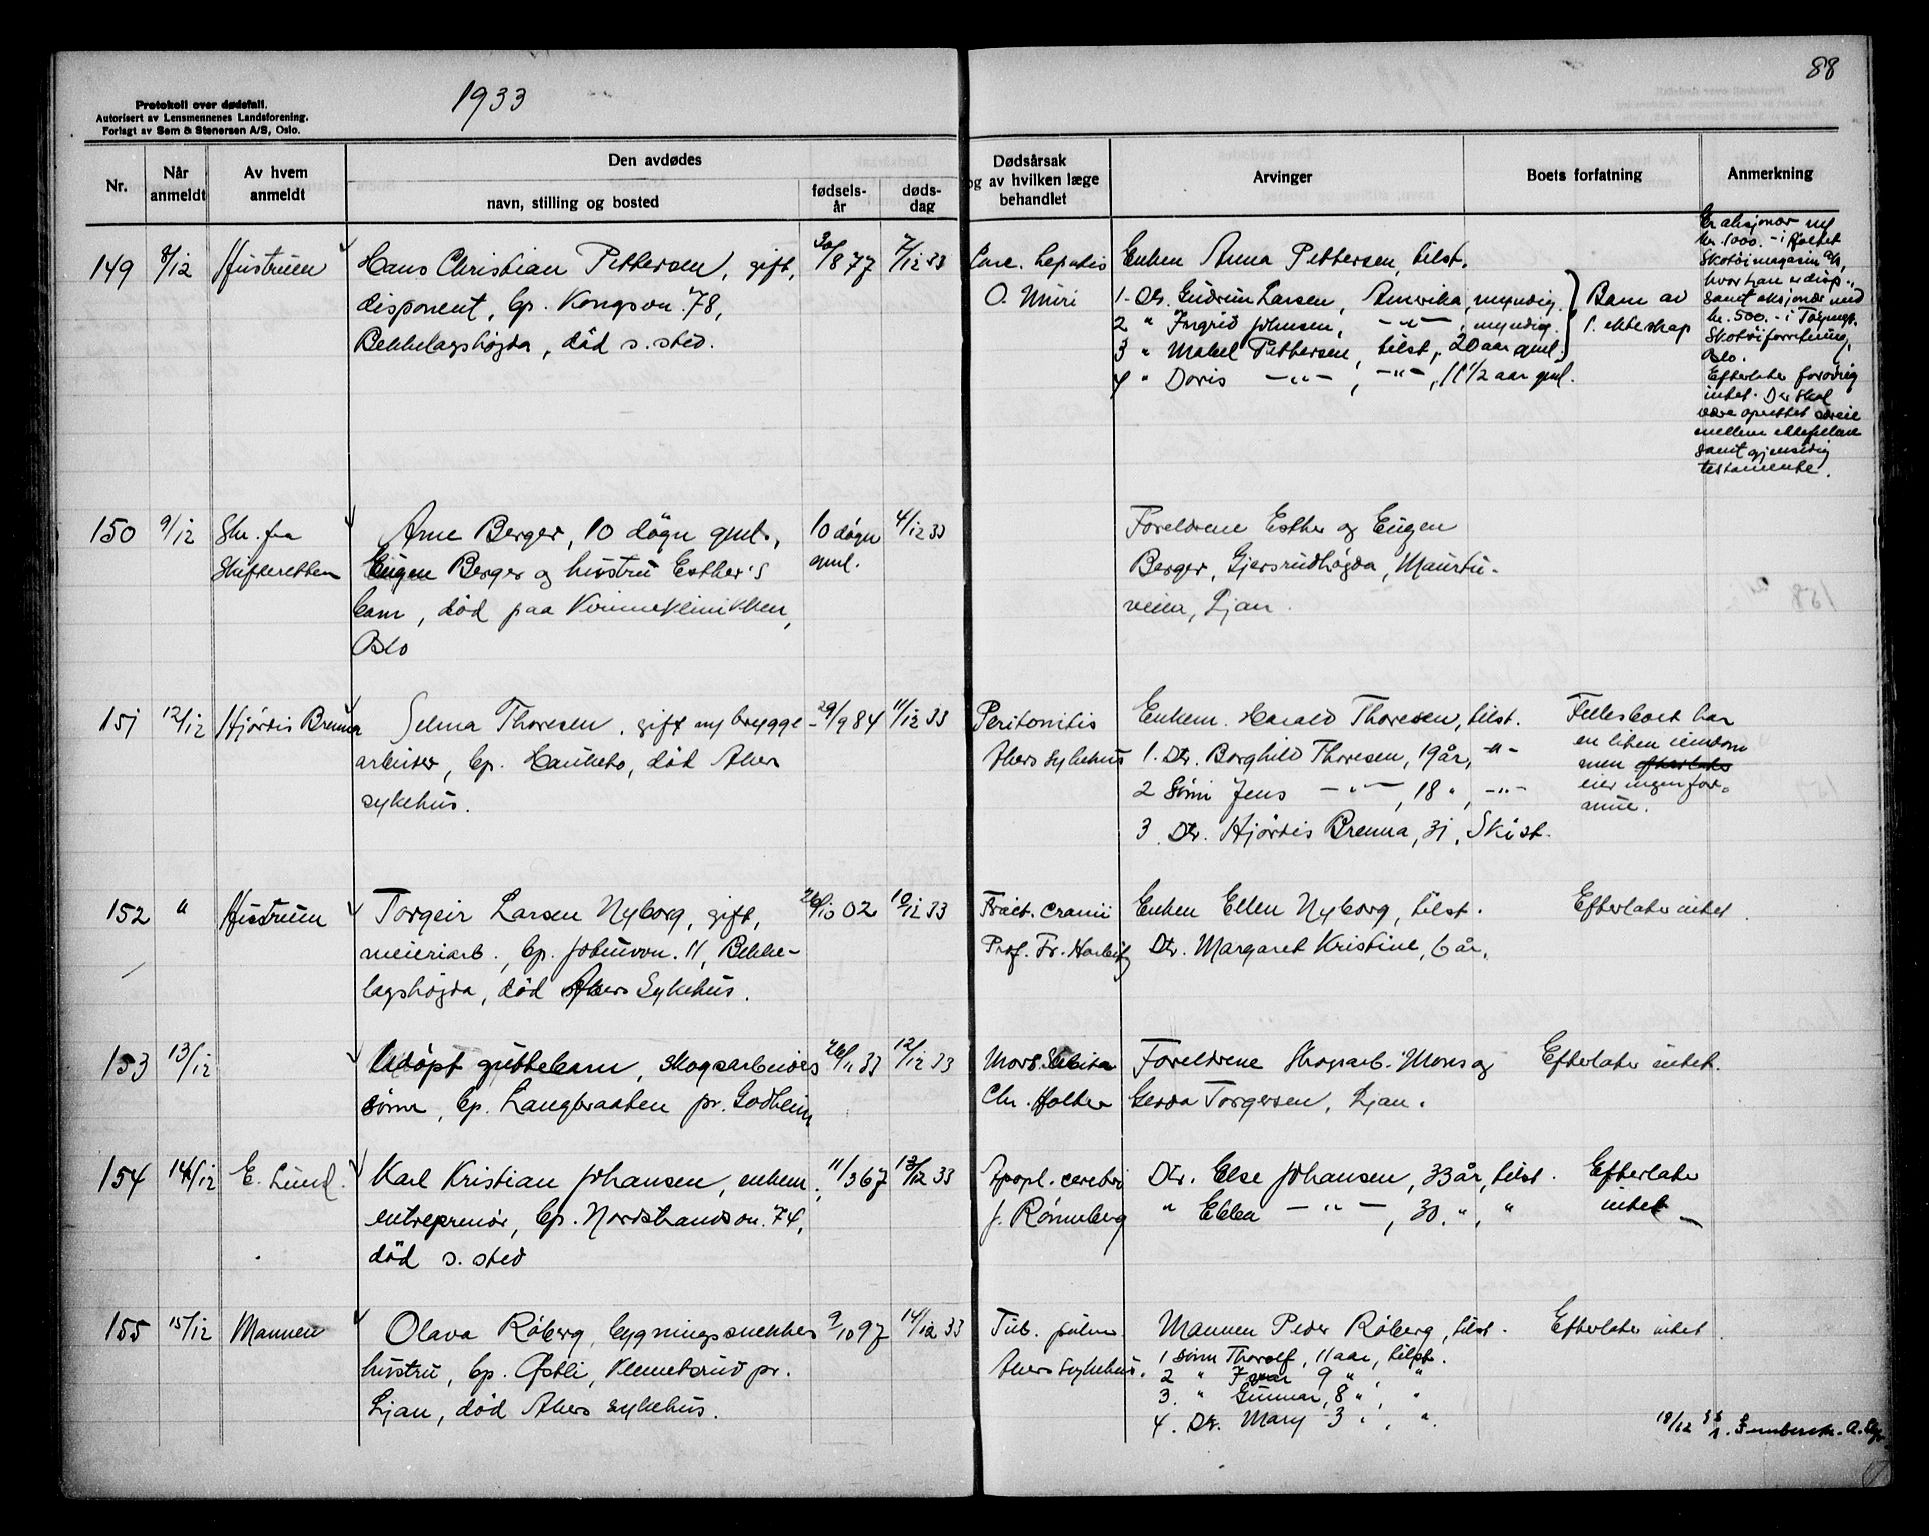 1933
88
Protokoll over dødsfall.
Autorisert av Lensmennenes Landsforening.
Forlagt av Sem & Stenersen A/S, Oslo.
Nr.
Når anmeldt
Av hvem anmeldt
Den avdødes
navn, stilling og bosted
fødsels-år
døds-dag
Dødsårsak
og av hvilken læge
behandlet
Arvinger
Boets forfatning
Anmerkning
149 8/12 Hustruen Hans Christian Pettersen, gift, 30/8 77 7/12 33
disponent, bp. Kongsvn. 78,
Bekkelagshøgda, död s. sted.
Carc. hepatis
O. Unæi
Enken Anna Pettersen, tilst.
1. Dtr. Gudrun Larsen, Amerika, myndig
2 " Ingrid Johnsen, -"- , myndig.
3 " Mabel Pettersen, tilst., 20 aar gml.
4 " Doris -"- , -"- , 11 1/2 aar gml.
Barn av
1. ekteskap
Er aksjonær
kr. 1000. - i
Skotöimagasin A/S,
hvor han er disp.,
samt aksjonær med
kr. 500. - i
Skotöiforretning,
Oslo.
Efterlater forövrig
intet. Der skal
være oprettet særeie
mellem ektefellene
samt gjensidig
testamente.
150 9/12 Skr. fra Arne Berger, 10 dögn gml., 10 dögn 4/12 33
Skifteretten Eugen Berger og hustru Esther's gml.
barn, död paa Kvinneklinikken,
Oslo
Foreldrene Esther og Eugen
Berger, Gjersrudhögda, Maurtu-
veien, Ljan.
151 12/12 Hjördis Brenna Selma Thoresen, gift m/ brygge- 29/9 84 11/12 33
arbeider, bp. Hauketo, död Aker
sykehus.
Peritonitis
Akers Sykehus
Enkem. Harald Thoresen, tilst.
1. Dtr. Borghild Thoresen, 19 år, -"-
2 Sönn Jens -"- , 18 ", -"-
3. Dtr. Hjördis Brenna, 31, Ski st.
Fellesboet har
en liten eiendom
men efterlater
eier ingen for-
mue.
152 " Hustruen Torgeir Larsen Nyborg, gift, 26/10 02 10/12 33
meieriarb., bp. Jomfruvn. 11, Bekke-
lagshögda, död Akers Sykehus.
Fract. cranii
Prof. Fr. Harbitz
Enken Ellen Nyborg, tilst.
Dtr. Margaret Kristine, 6 år.
Efterlater intet.
153 13/12 Udöpt guttebarn, skogsarbeiders 26/11 33 12/12 33
sönn, bp. Langbraaten pr. Godheim
Mors subita
Chr. Holther
Foreldrene skogsarb. Mons og
Gerda Torgersen, Ljan.
Efterlater intet.
154 14/12 E. Lund. Karl Kristian Johansen, enkem., 11/3 67 13/12 33
entreprenör, bp. Nordstrandsvn. 74,
död s. sted
Apopl. cerebri
J. Rönneberg
Dtr. Else Johansen, 33 år, tilst.
" Ebba -"- , 30 ", "
Efterlater
intet
155 15/12 Mannen Olava Röberg, bygningssnekkers 9/10 97 14/12 33
hustru, bp. Östli, Klemetsrud pr.
Ljan, död Akers sykehus.
Tub. pulm.
Akers Sykehus.
Mannen Peder Röberg, tilst.
1 sönn Thorolf, 11 aar, tilst.
2 " Ivar 9 ", "
3. " Gunnar, 8 ", "
4. Dtr. Mary 3 ", "
Efterlater intet.
18/12 33